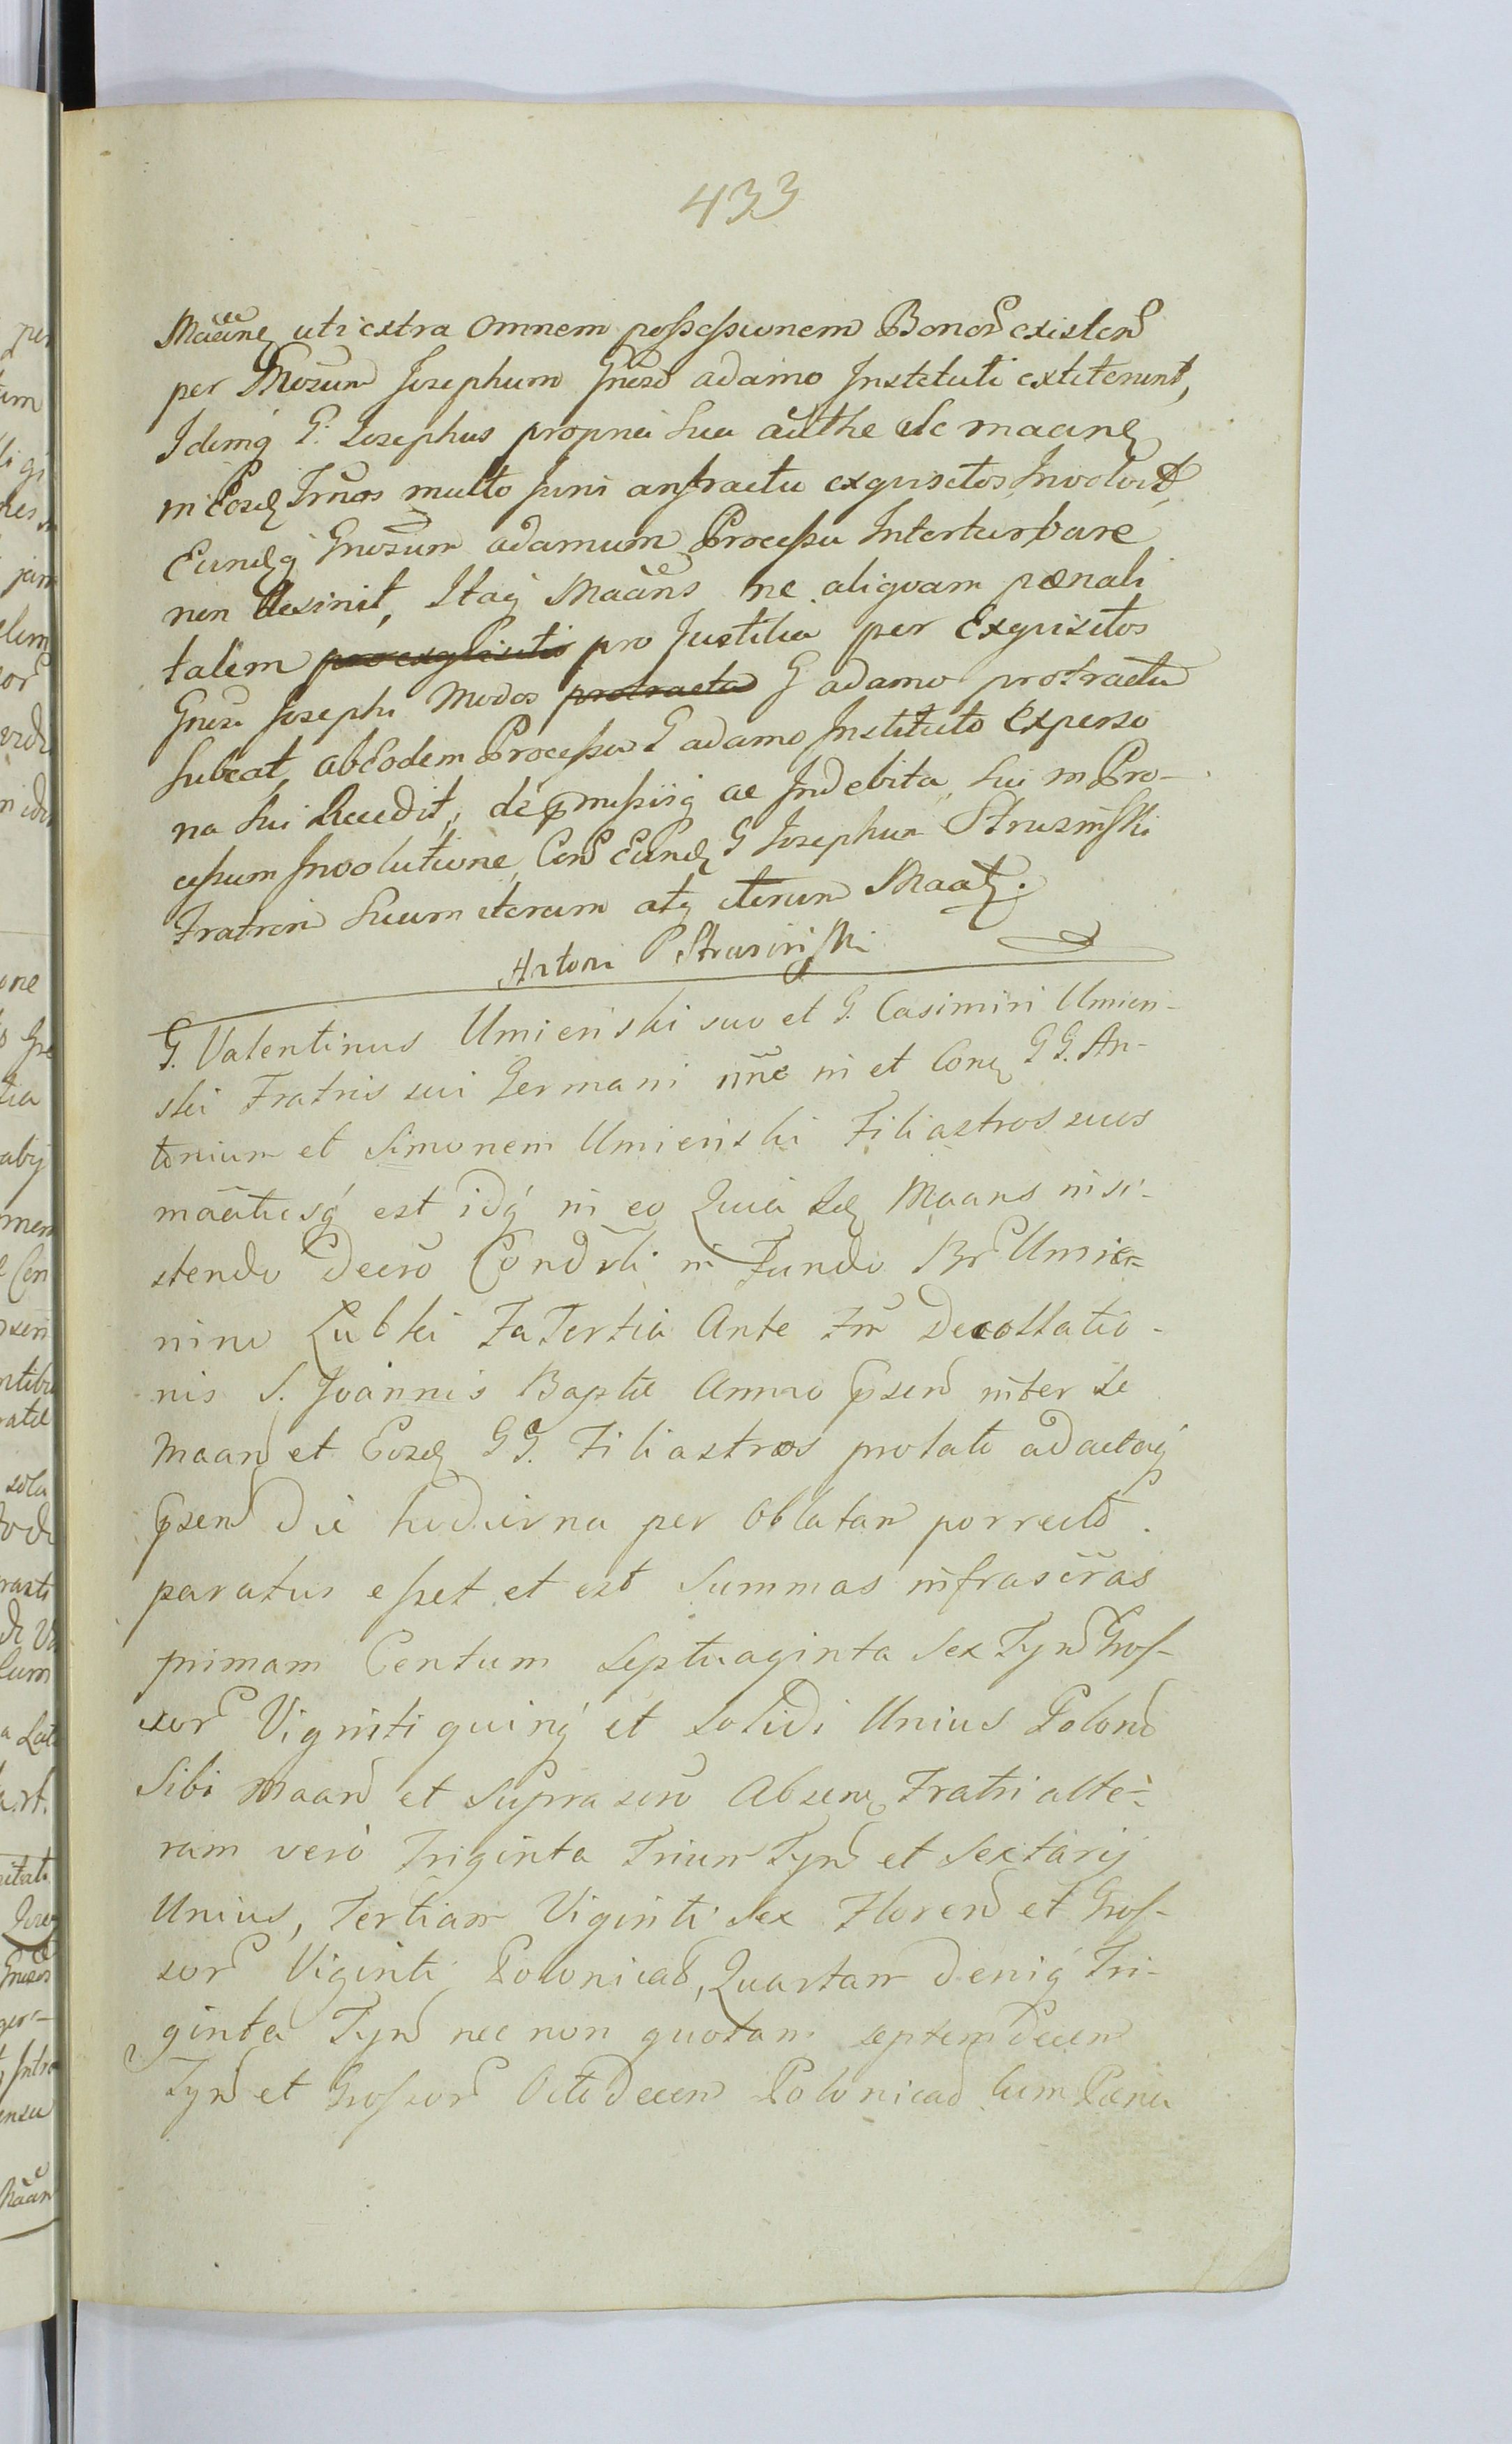 433
Maane uti extra omnem possessionem Bonor existen
per Gnosum Josephum Gneso adamo Instituti extiterint,
Idemq G. Josephus propria sua authe se maane
in Eosd Trnos multo Juris anfractu exquisitos Involvit,
Eundq Gnosum adamum Processu Interturbare
non desinit, Itaq Maans ne aliquam pœnali
talem per exquisitis pro Justitia per Exquisitos
Gnosi Josephi Modos protracta G adamo protractu
subeat, ab Eodem Processu G adamo Instituto Experso
na sui Recedit, de pmissiiq ac Indebita sui in Pro-
cessum Involutione, Con Eund G Josephum Strusinski
Fratrem suum iterum atq iterum Maat.
Antoni P Strusinski
G. Valentinus Umienski suo et G. Casimiri Umien-
ski Fratris sui Germani nne in et Con GG. An-
tonium et Simonem Umienski Filiastros suos
maatusq est idq in eo Quia Id Maans insi-
stendo Decro Condrli in Fundo Br Umie-
nino Lubki Fa Tertia Ante Fm Decollatio-
nis S. Joannis Baptæ Anno psen inter se
Maan et Eosd GG. Filiastros prolato ad actaq
psen die hodierna per Oblatam porrecto.
paratus esset et est Summas infrascras
primam Centum Septuaginta Sex Tyn Gros-
sor Viginti quinq et Solidi Unius Polon
Sibi Maan et Suprasero Absen Fratri alte-
ram vero Triginta Trium Tyn et Sextarij
Unius, Tertiam Viginti Sex Floren et Gros-
sor Viginti Polonical, Quartam deniq Tri-
ginta Tyn nec non quotam septemdecem
Tyn et Grossor Octodecem Polonical cum Pœna